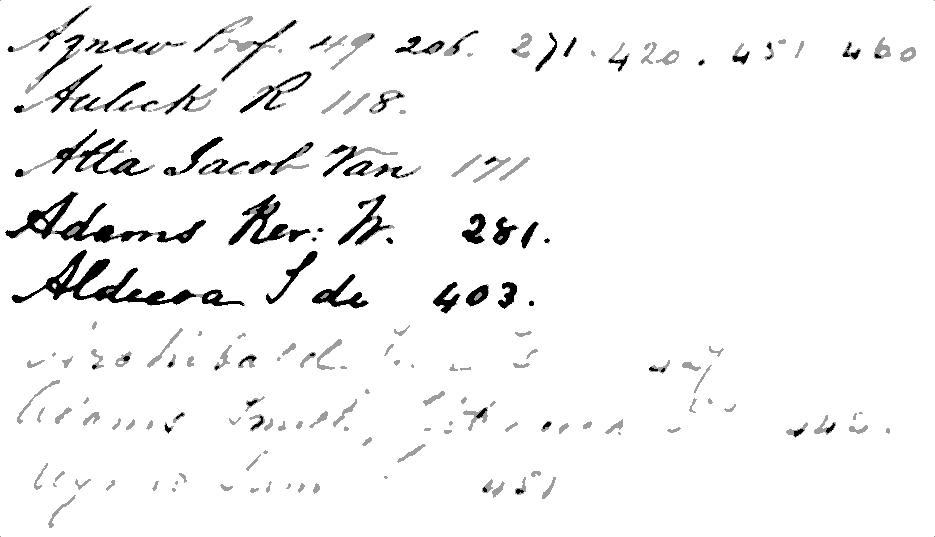 Agnew Prof. 49 206. 271. 420. 451 460
Aulick R 118.
Atta Jacob Van 171
Adams Rev: W. 281.
Aldecoa S de 403.
Archibald
Adams Smith,
Sam 451